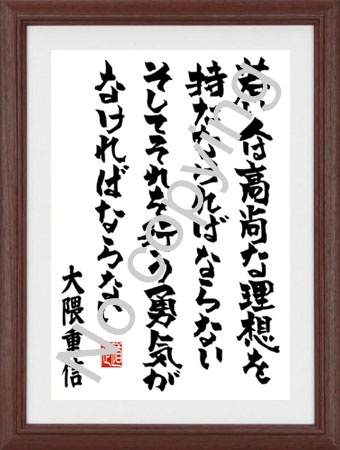 若い人は高尚な理想を
持たなければならない
そしてそれを行う勇気が
なければならない
大隈重信
No copying